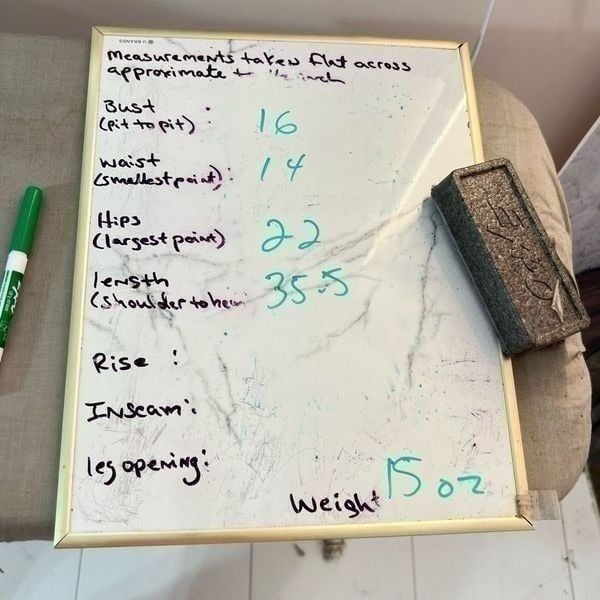 U BRANDS
measurements taken flat across
approximate + 1/2 inch
Bust :
(pit to pit) 16
waist
(smallest point): 14
Hips
(largest point) 22
length
(shoulder to hem 35.5
Rise :
Inseam:
leg opening:
Weight 15 oz
Expo